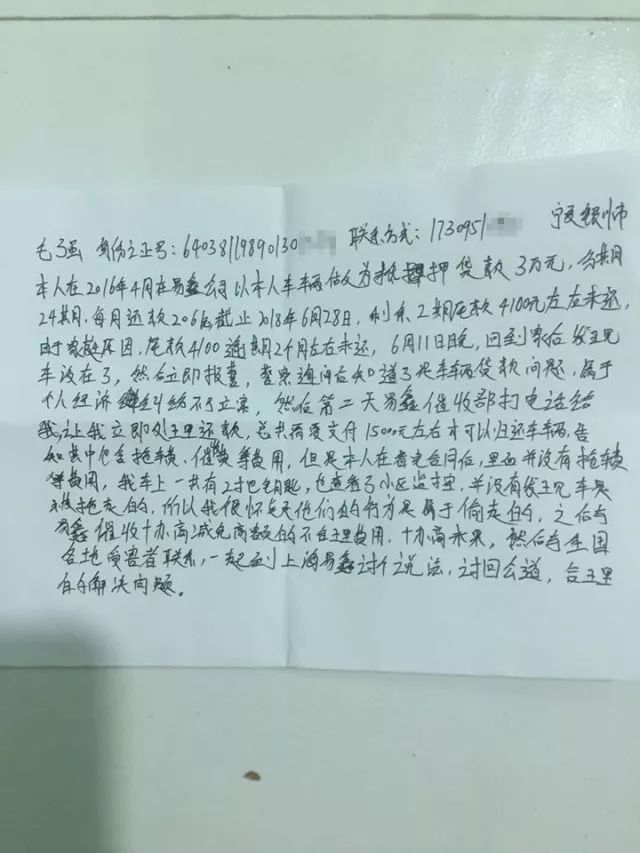 毛了强 身份之正号:64038119890130 联系方式:1730951 宁夏银川市
本人在2016年4月在易鑫公司以本人车辆做为抵押贷款3万元,分期
24期,每月还款206元截止2018年6月28日,剩余2期尾款4100元左右未还,
由于家庭原因,尾款4100逾期2个月左右未还,6月11日晚,回到家后发现
车没在了,然后立即报警,警察询问后知道了是车辆贷款问题,属于
个人经济纠纷不予立案,然后第二天易鑫催收部打电话给
我让我立即处理还款,总共需要支付15000元左右才可以归还车辆,告
知其中包含拖车费、催收费等费用,但是本人在看完合同后,里面并没有拖车费
等费用,我车上一共有2把钥匙,也查看了小区监控,并没有发现车是
被拖走的,所以我很怀疑他们的行为是属于偷走的,之后与
易鑫催收协商减免高额的不合理费用,协商未果,然后与全国
各地受害者联系,一起到上海易鑫讨个说法,讨回公道,合理
的解决问题。